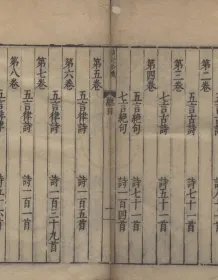 第二卷
五言古詩 詩七十一首
第三卷
七言古詩 詩五十一首
第四卷
五言絕句 詩七十一首
七言絕句 詩一百四首
總目
第五卷
五言律詩 詩一百五首
第六卷
五言律詩 詩一百三十九首
第七卷
五言律詩 詩一百一首
第八卷
五言律詩